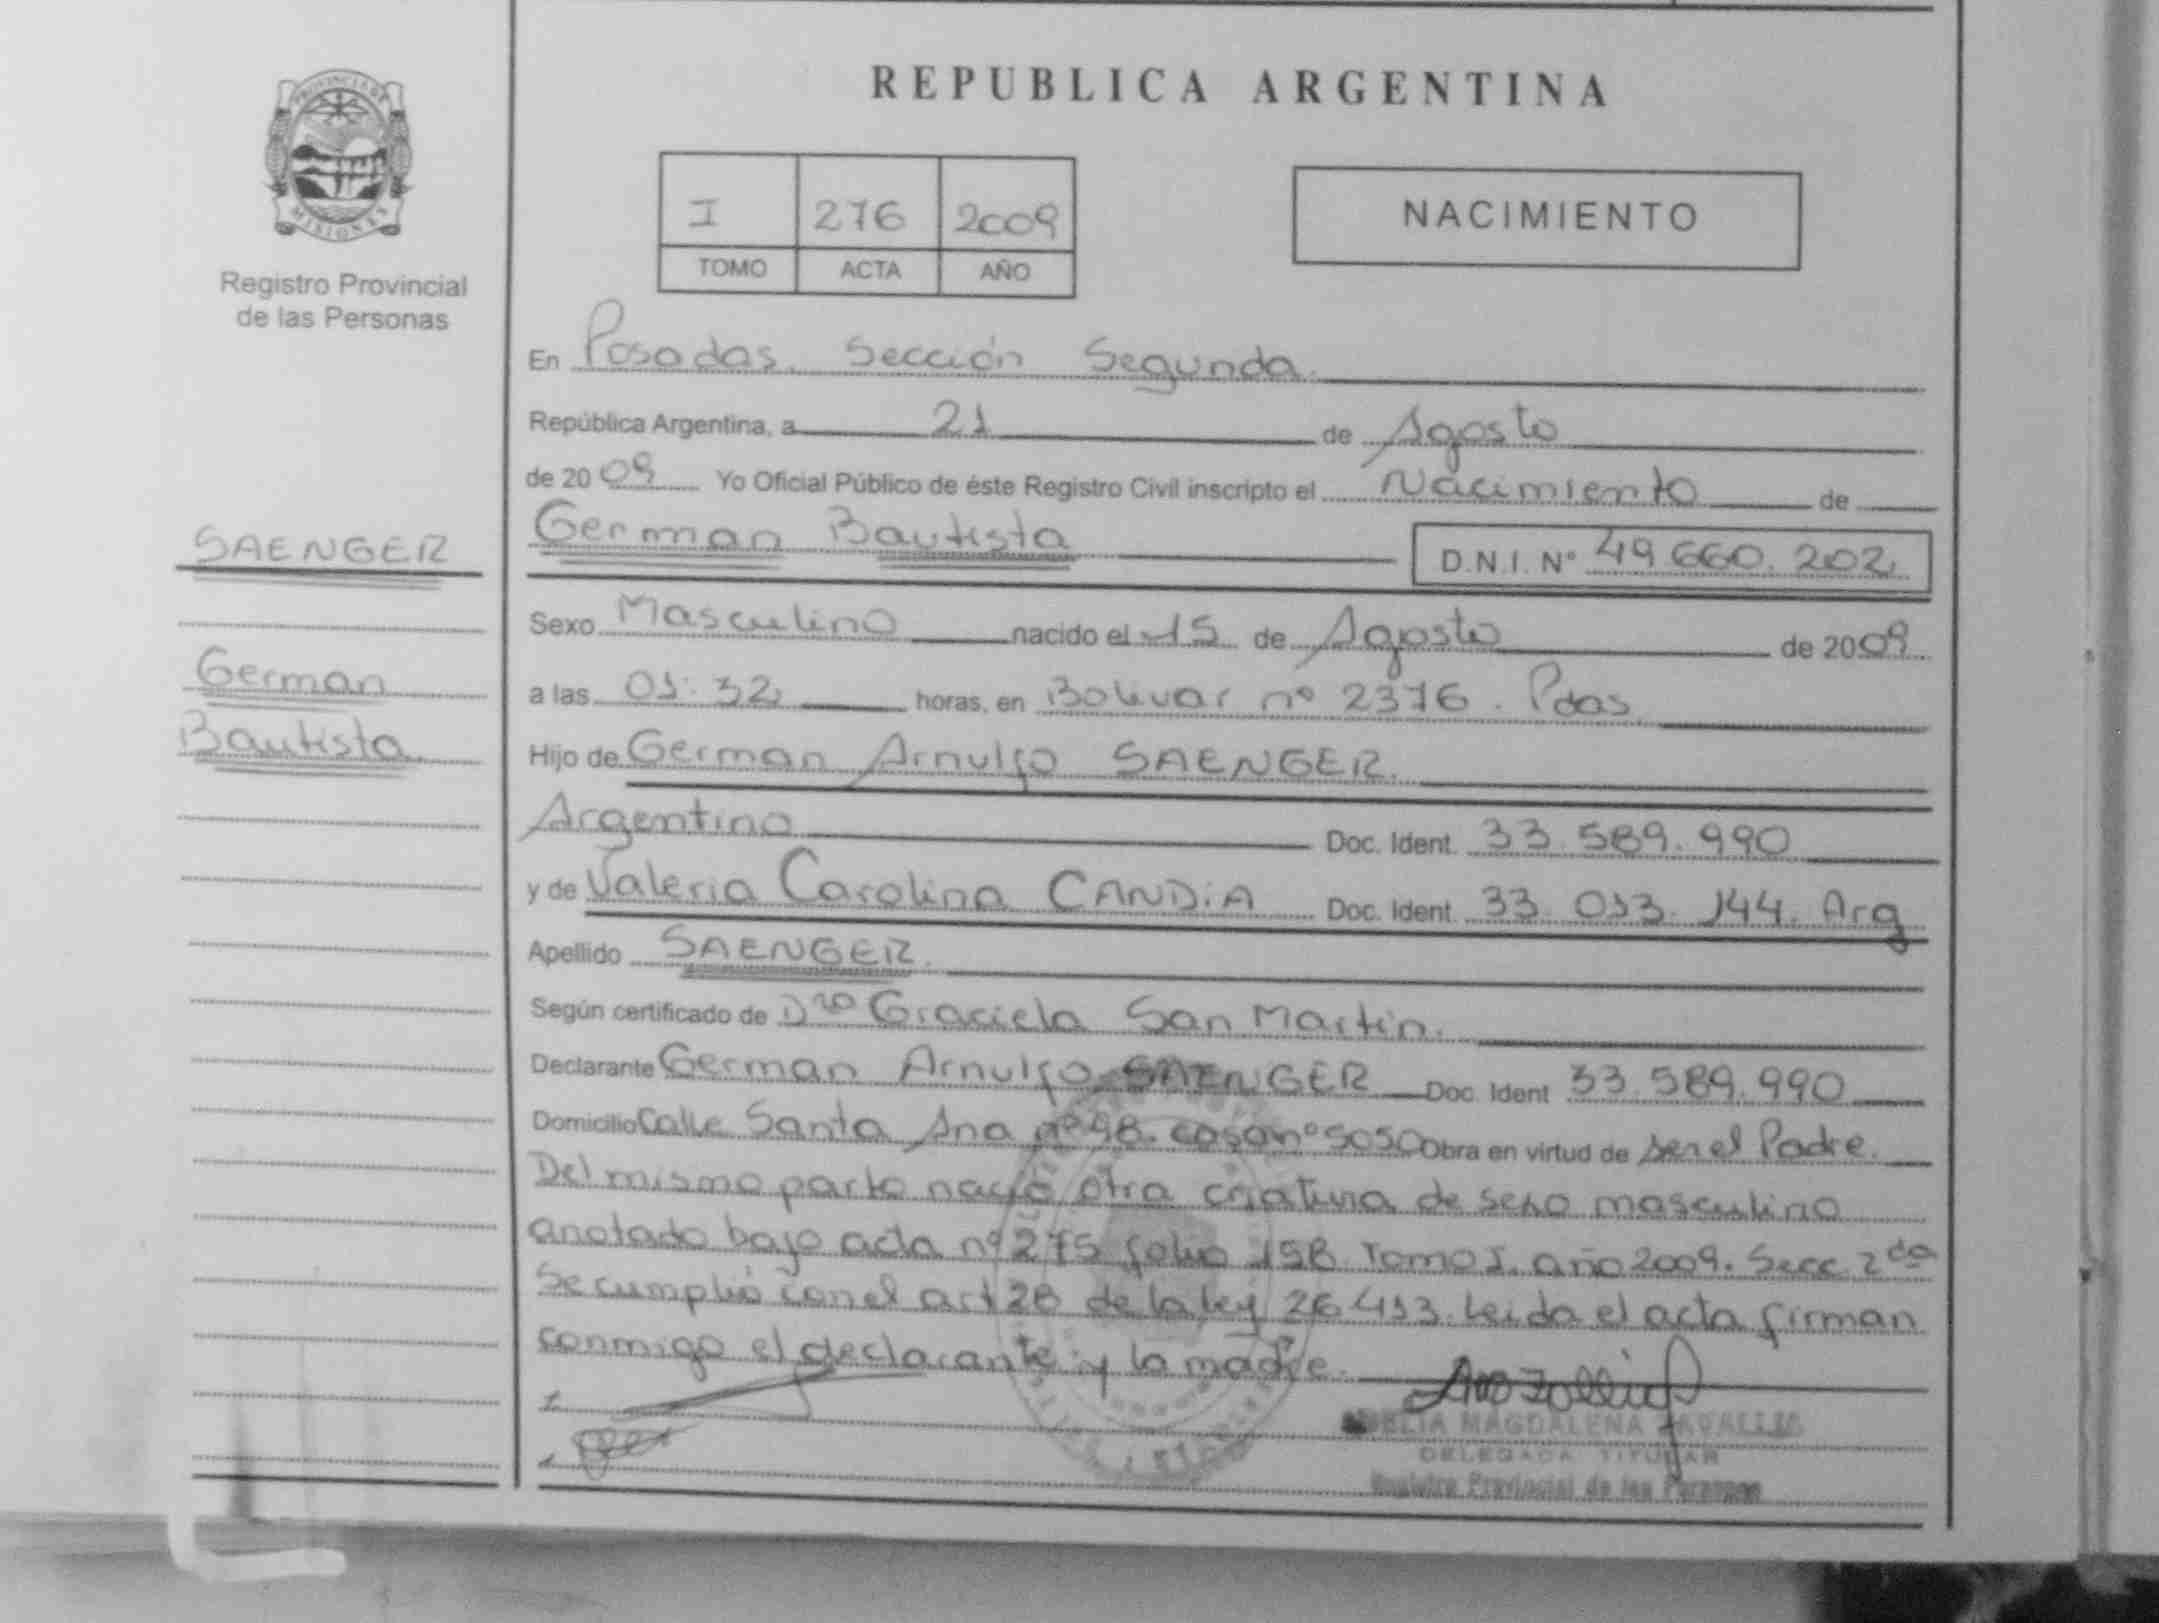 REPUBLICA ARGENTINA
PROVINCIA DE
MISIONES
Registro Provincial
de las Personas
I 276 2009
TOMO ACTA AÑO
NACIMIENTO
En Posadas. Sección Segunda.
República Argentina, a 21 de Agosto
de 2009 Yo Oficial Público de éste Registro Civil inscripto el Nacimiento de
SAENGER
German
Bautista
German Bautista D.N.I. Nº 49.660.202
Sexo Masculino nacido el 15 de Agosto de 2009
a las 01:32 horas, en Bolivar nº 2376. Pdas.
Hijo de German Arnulfo SAENGER.
Argentino Doc. Ident. 33.589.990
y de Valeria Carolina CANDiA Doc. Ident. 33.013.144. Arg
Apellido SAENGER.
Según certificado de Dra Graciela San Martín.
Declarante German Arnulfo SAENGER Doc. Ident 33.589.990
Domicilio Calle Santa Ana nº 98. casa nº 5050 Obra en virtud de ser el Padre.
Del mismo parto nació otra criatura de sexo masculino
anotado bajo acta nº 275 folio 158 Tomo I. año 2009. Secc 2da
Se cumplió con el art 28 de la ley 26.413. Leida el acta firman
conmigo el declarante y la madre.
DELIA MAGDALENA ZAVALLIA
DELEGADA TITULAR
Registro Provincial de las Personas